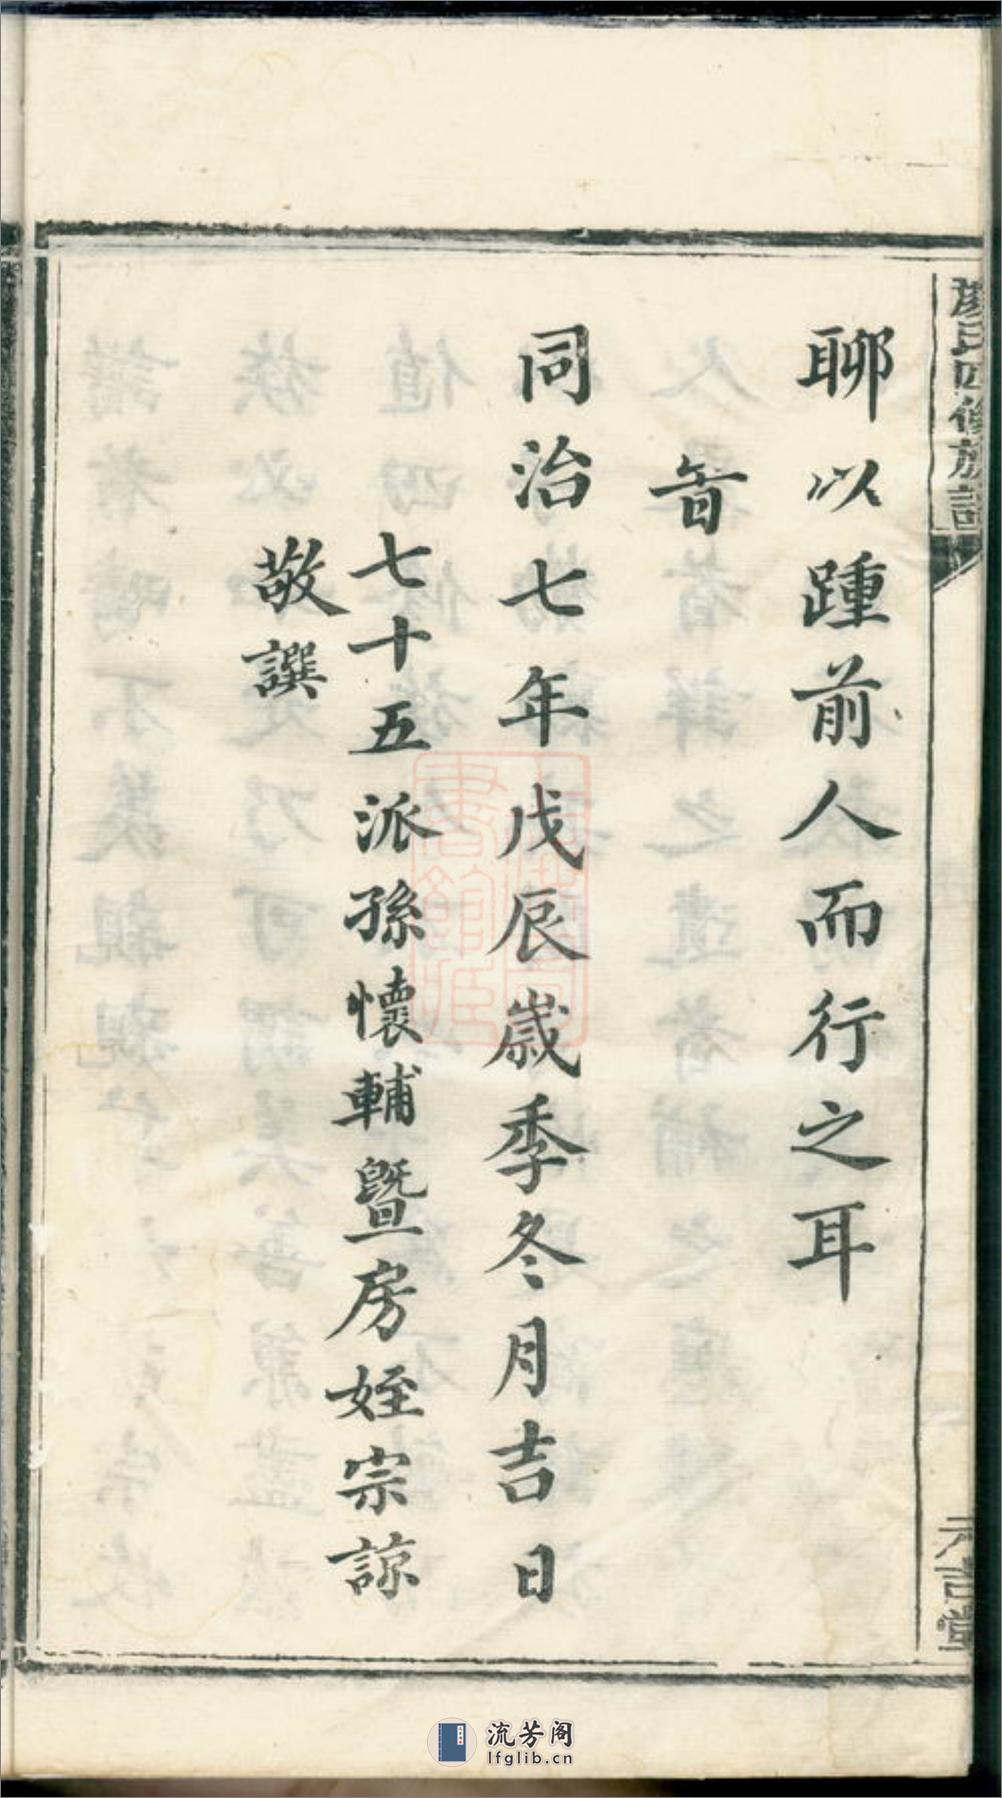 聊以踵前人而行之耳
旹
同治七年戊辰歲季冬月吉日
七十五派孫懷輔暨房姪宗諒
敬譔
氏四修族譜
元吉堂
流芳阁
lfglib.cn